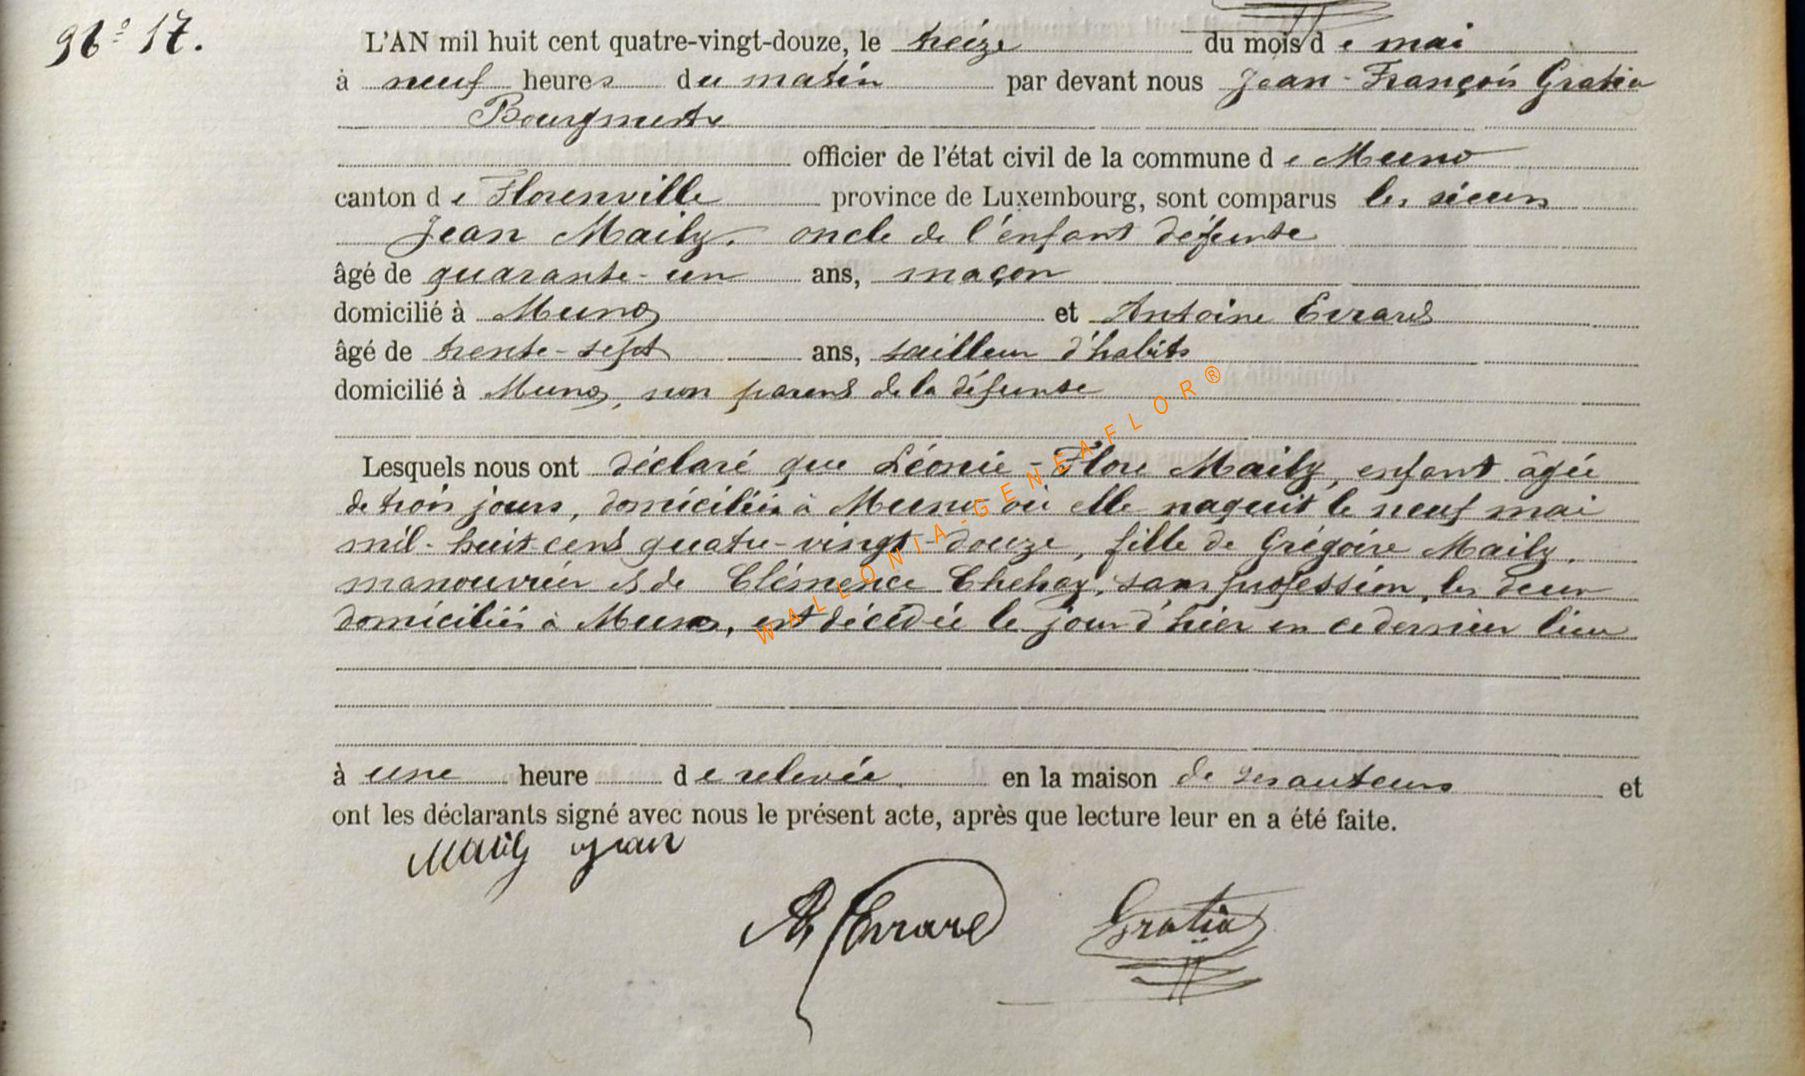 N° 17.
L'AN mil huit cent quatre-vingt-douze, le treize du mois de mai
à neuf heures du matin par devant nous Jean-François Gratia
Bourgmestre
officier de l'état civil de la commune de Muno
canton de Florenville province de Luxembourg, sont comparus les sieurs
Jean Maily, oncle de l'enfant défunte
âgé de quarante-un ans, maçon
domicilié à Muno et Antoine Evrard
âgé de trente-sept ans, tailleur d'habits
domicilié à Muno, non parent de la défunte
Lesquels nous ont déclaré que Léonie-Flore Maily, enfant âgée
de trois jours, domiciliée à Muno où elle naquit le neuf mai
mil-huit cent quatre-vingt-douze, fille de Grégoire Maily,
manouvrier et de Clémence Chehoy, sans profession, les deux
domiciliés à Muno, est décédée le jour d'hier en ce dernier lieu
à une heure de relevée en la maison de ses auteurs et
ont les déclarants signé avec nous le présent acte, après que lecture leur en a été faite.
Maily Jean
A. Evrard Gratia
WALLONIA-GENEAFLOR®